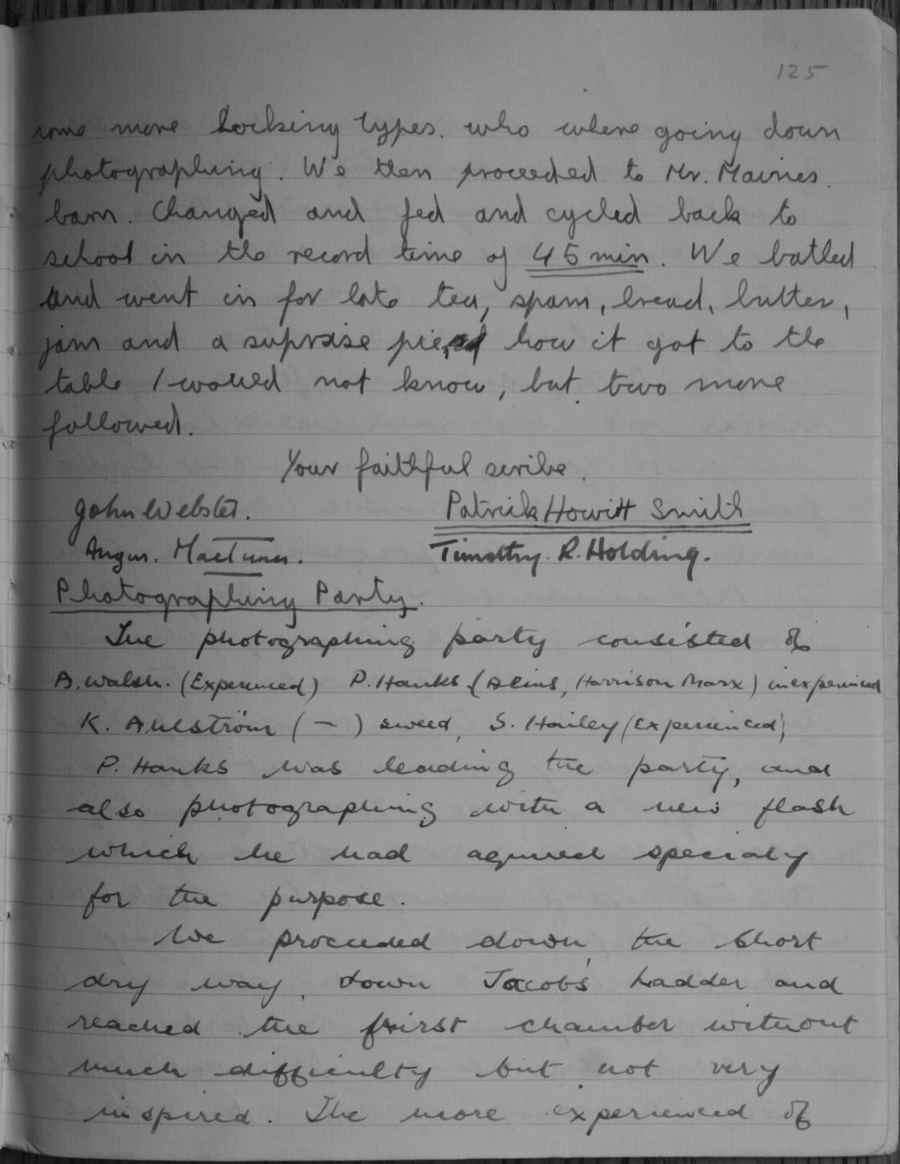 125
some more hocking types. who where going down
photographing. We then proceeded to Mr. Maines.
barn. Changed and fed and cycled back to
school in the record time of 45 min. We batled
and went in for late tea, spam, bread, butter,
jam and a suprise pie, how it got to the
table I would not know, but two more
followed.
Your faithful scribe.
John Webster. Patrick Howitt Smith
Angus. MacTunes. Timothy. R. Holding.
Photographing Party.
The photographing party consisted of
A. Walsh. (Experienced) P. Hanks (Harrison Marx) inexperienced
K. Ahlström (–) sweed, S. Hailey (experienced)
P. Hanks was leading the party, and
also photographing with a new flash
which he had aquired specialy
for the purpose.
We proceeded down the Short
dry way, down Jacob's Ladder and
reached the first chamber without
much difficulty but not very
inspired. The more experienced of